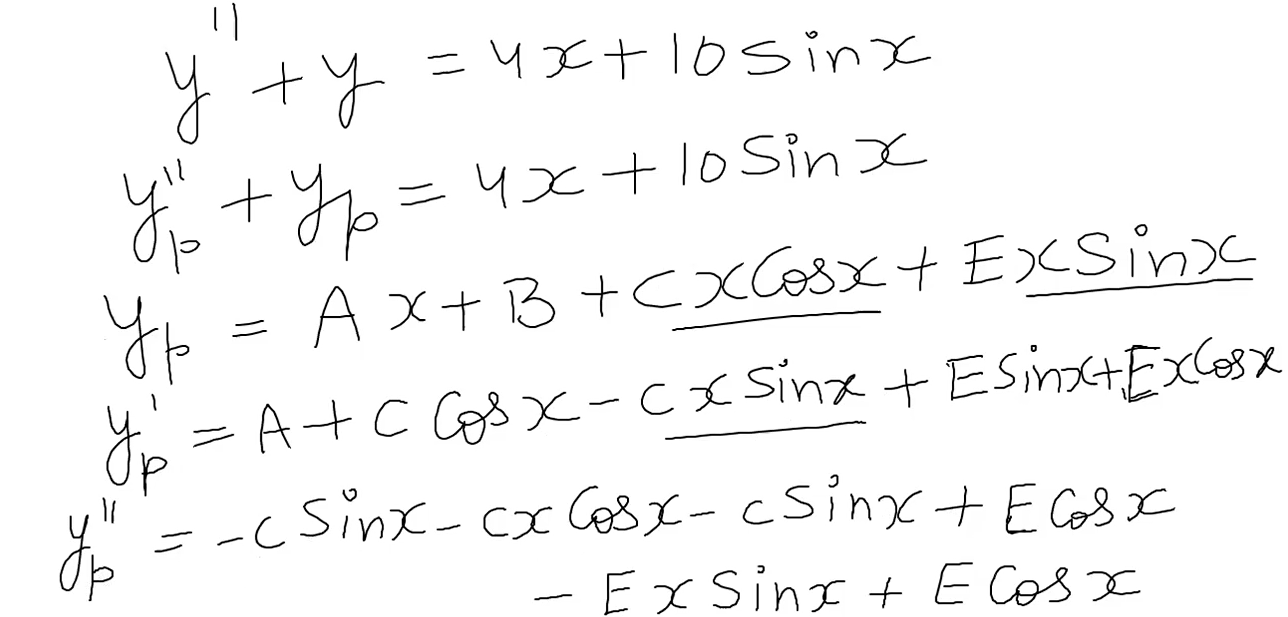 y'' + y = 4x + 10 sin x
y_p'' + y_p = 4x + 10 Sin x
y_p = A x + B + C x Cos x + E x Sin x
y_p' = A + C Cos x - C x Sin x + E Sin x + E x Cos x
y_p'' = - C Sin x - C x Cos x - C Sin x + E Cos x
- E x Sin x + E Cos x